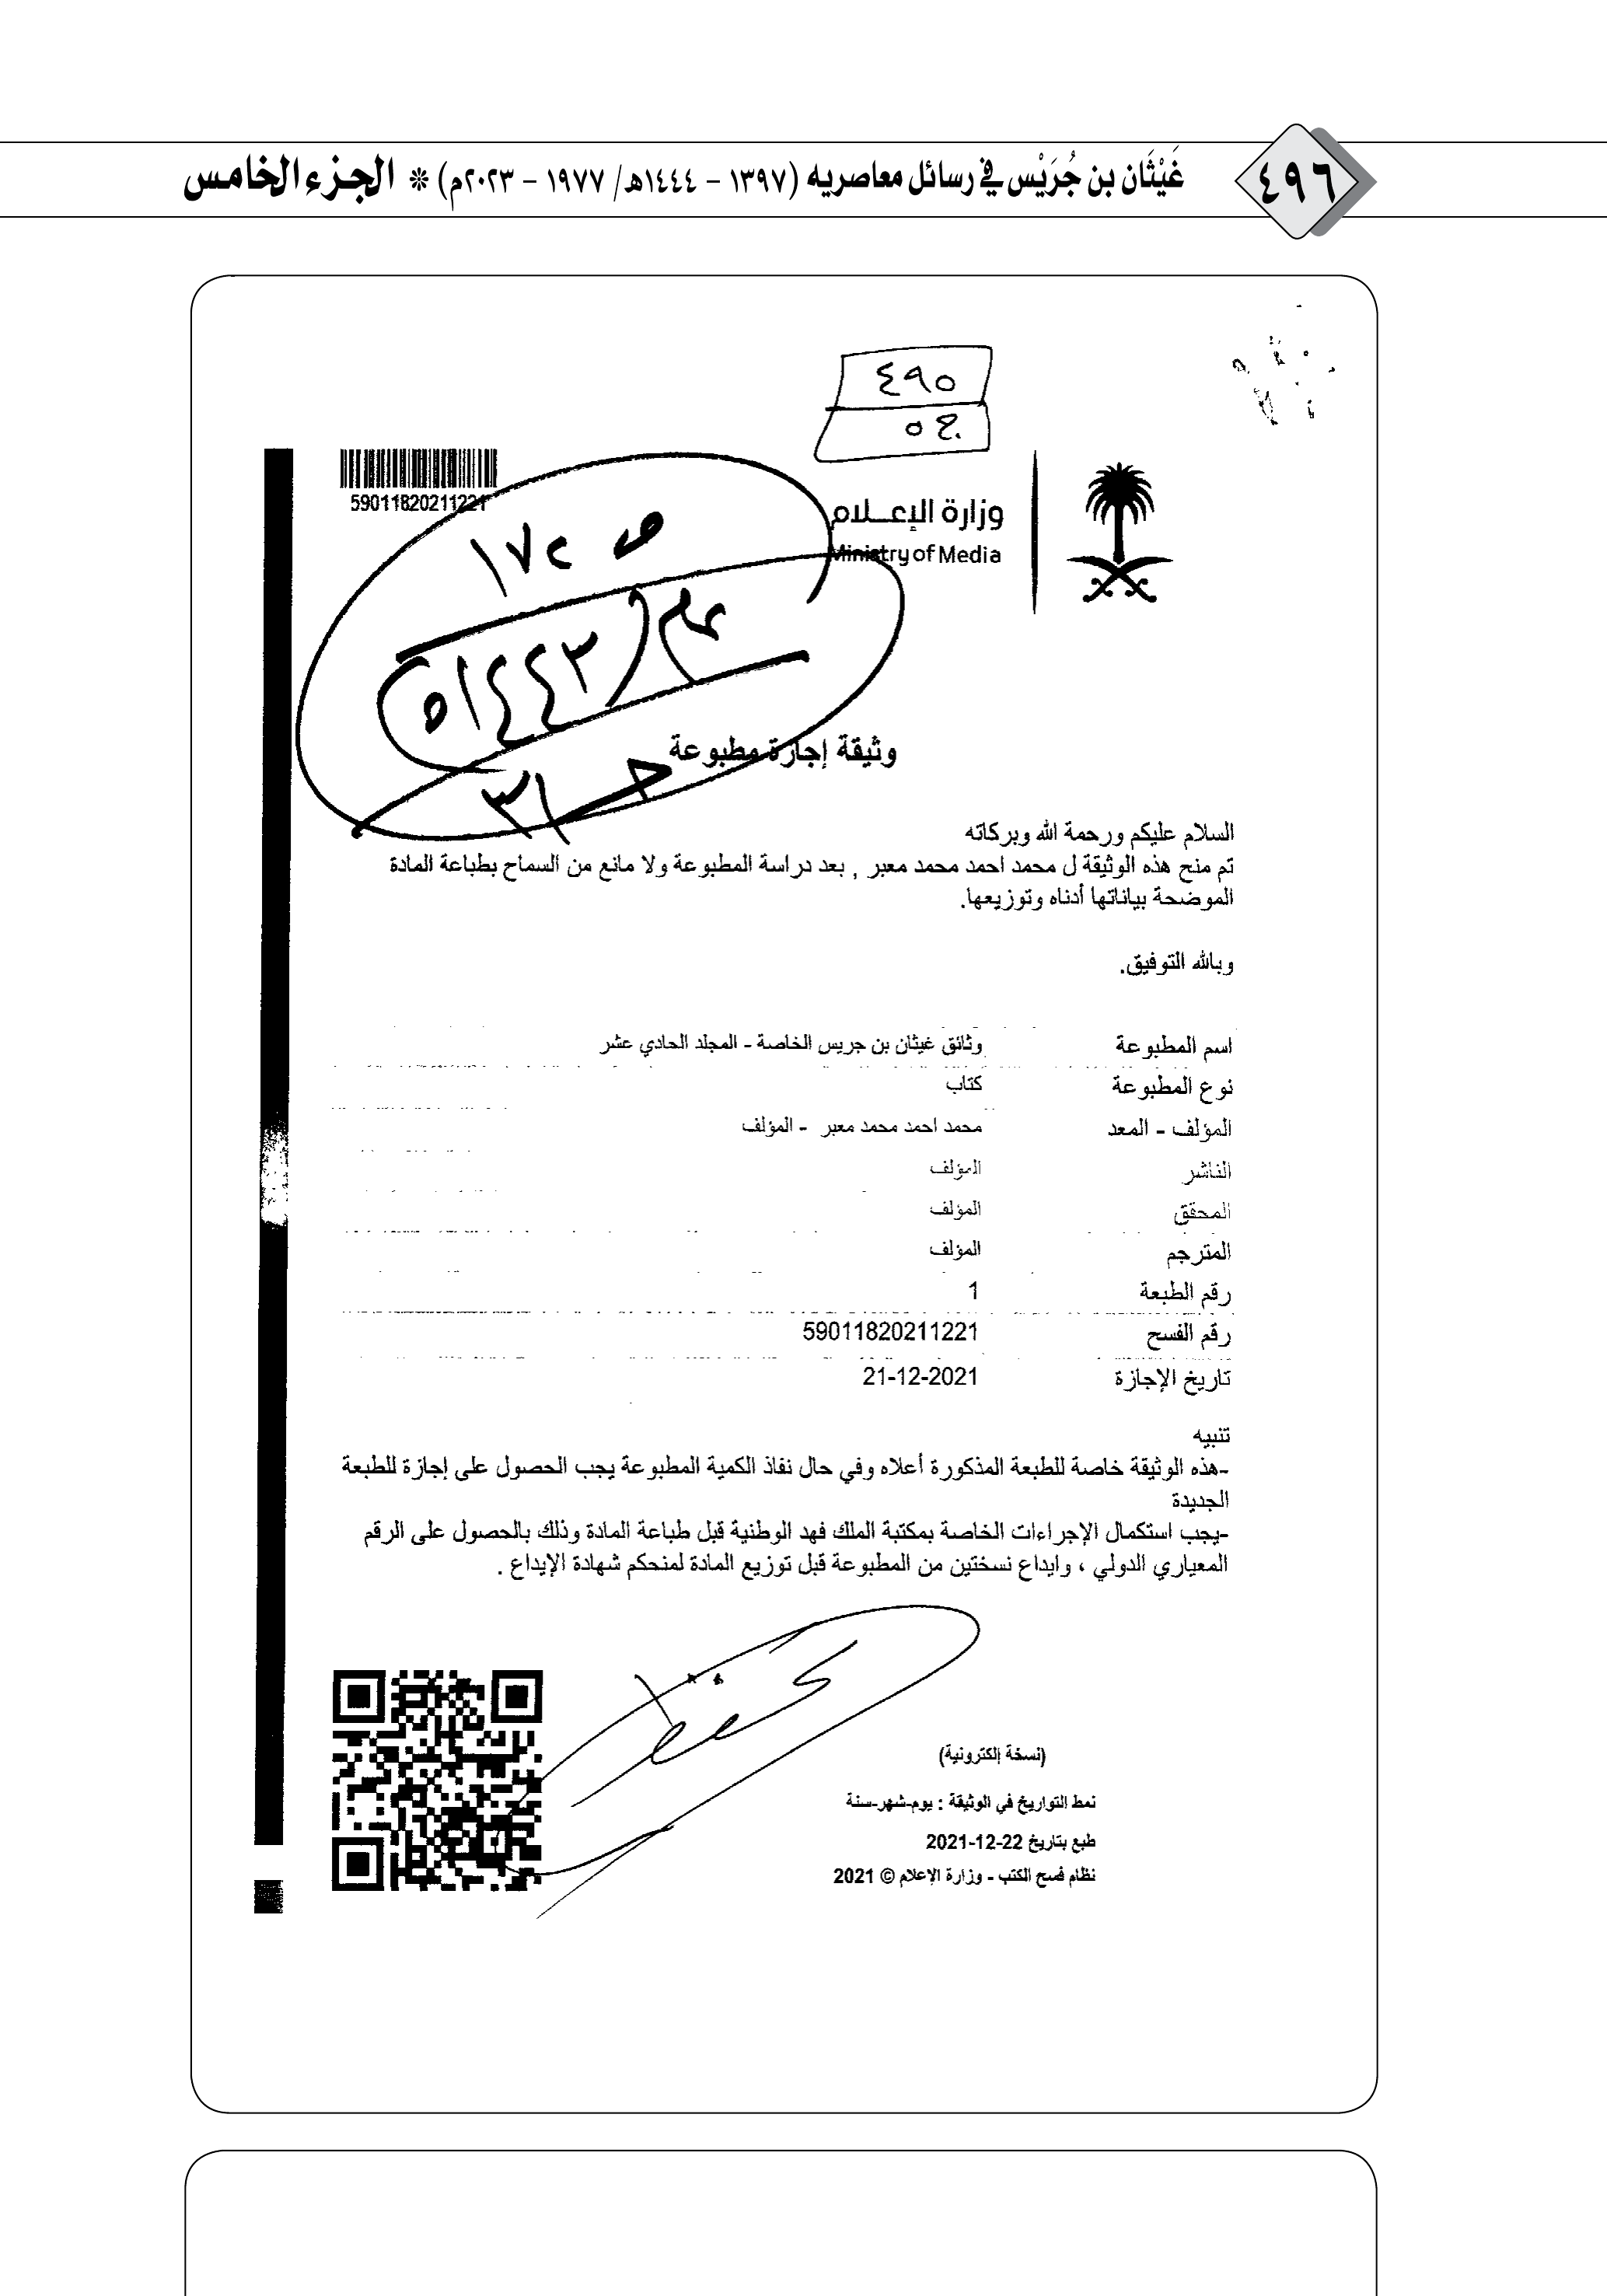 ٤٩٦
غَيْثَان بن جُرَيْس في رسائل معاصريه (١٣٩٧ - ١٤٤٤هـ/ ١٩٧٧ - ٢٠٢٣م) * الجزء الخامس
٤٩٥
59011820211221
وزارة الإعـــلام
Ministry of Media
ص ١٧٢
١٤٤٣هـ
وثيقة إجازة مطبوعة
السلام عليكم ورحمة الله وبركاته
تم منح هذه الوثيقة ل محمد احمد محمد معبر , بعد دراسة المطبوعة ولا مانع من السماح بطباعة المادة
الموضحة بياناتها أدناه وتوزيعها.
وبالله التوفيق.
اسم المطبوعة وثائق غيثان بن جريس الخاصة - المجلد الحادي عشر
نوع المطبوعة كتاب
المؤلف - المعد محمد احمد محمد معبر - المؤلف
الناشر المؤلف
المحقق المؤلف
المترجم المؤلف
رقم الطبعة 1
رقم الفسح 59011820211221
تاريخ الإجازة 21-12-2021
تنبيه
-هذه الوثيقة خاصة للطبعة المذكورة أعلاه وفي حال نفاذ الكمية المطبوعة يجب الحصول على إجازة للطبعة
الجديدة
-يجب استكمال الإجراءات الخاصة بمكتبة الملك فهد الوطنية قبل طباعة المادة وذلك بالحصول على الرقم
المعياري الدولي ، وايداع نسختين من المطبوعة قبل توزيع المادة لمنحكم شهادة الإيداع .
(نسخة إلكترونية)
نمط التواريخ في الوثيقة : يوم-شهر-سنة
طبع بتاريخ 22-12-2021
نظام فسح الكتب - وزارة الإعلام © 2021